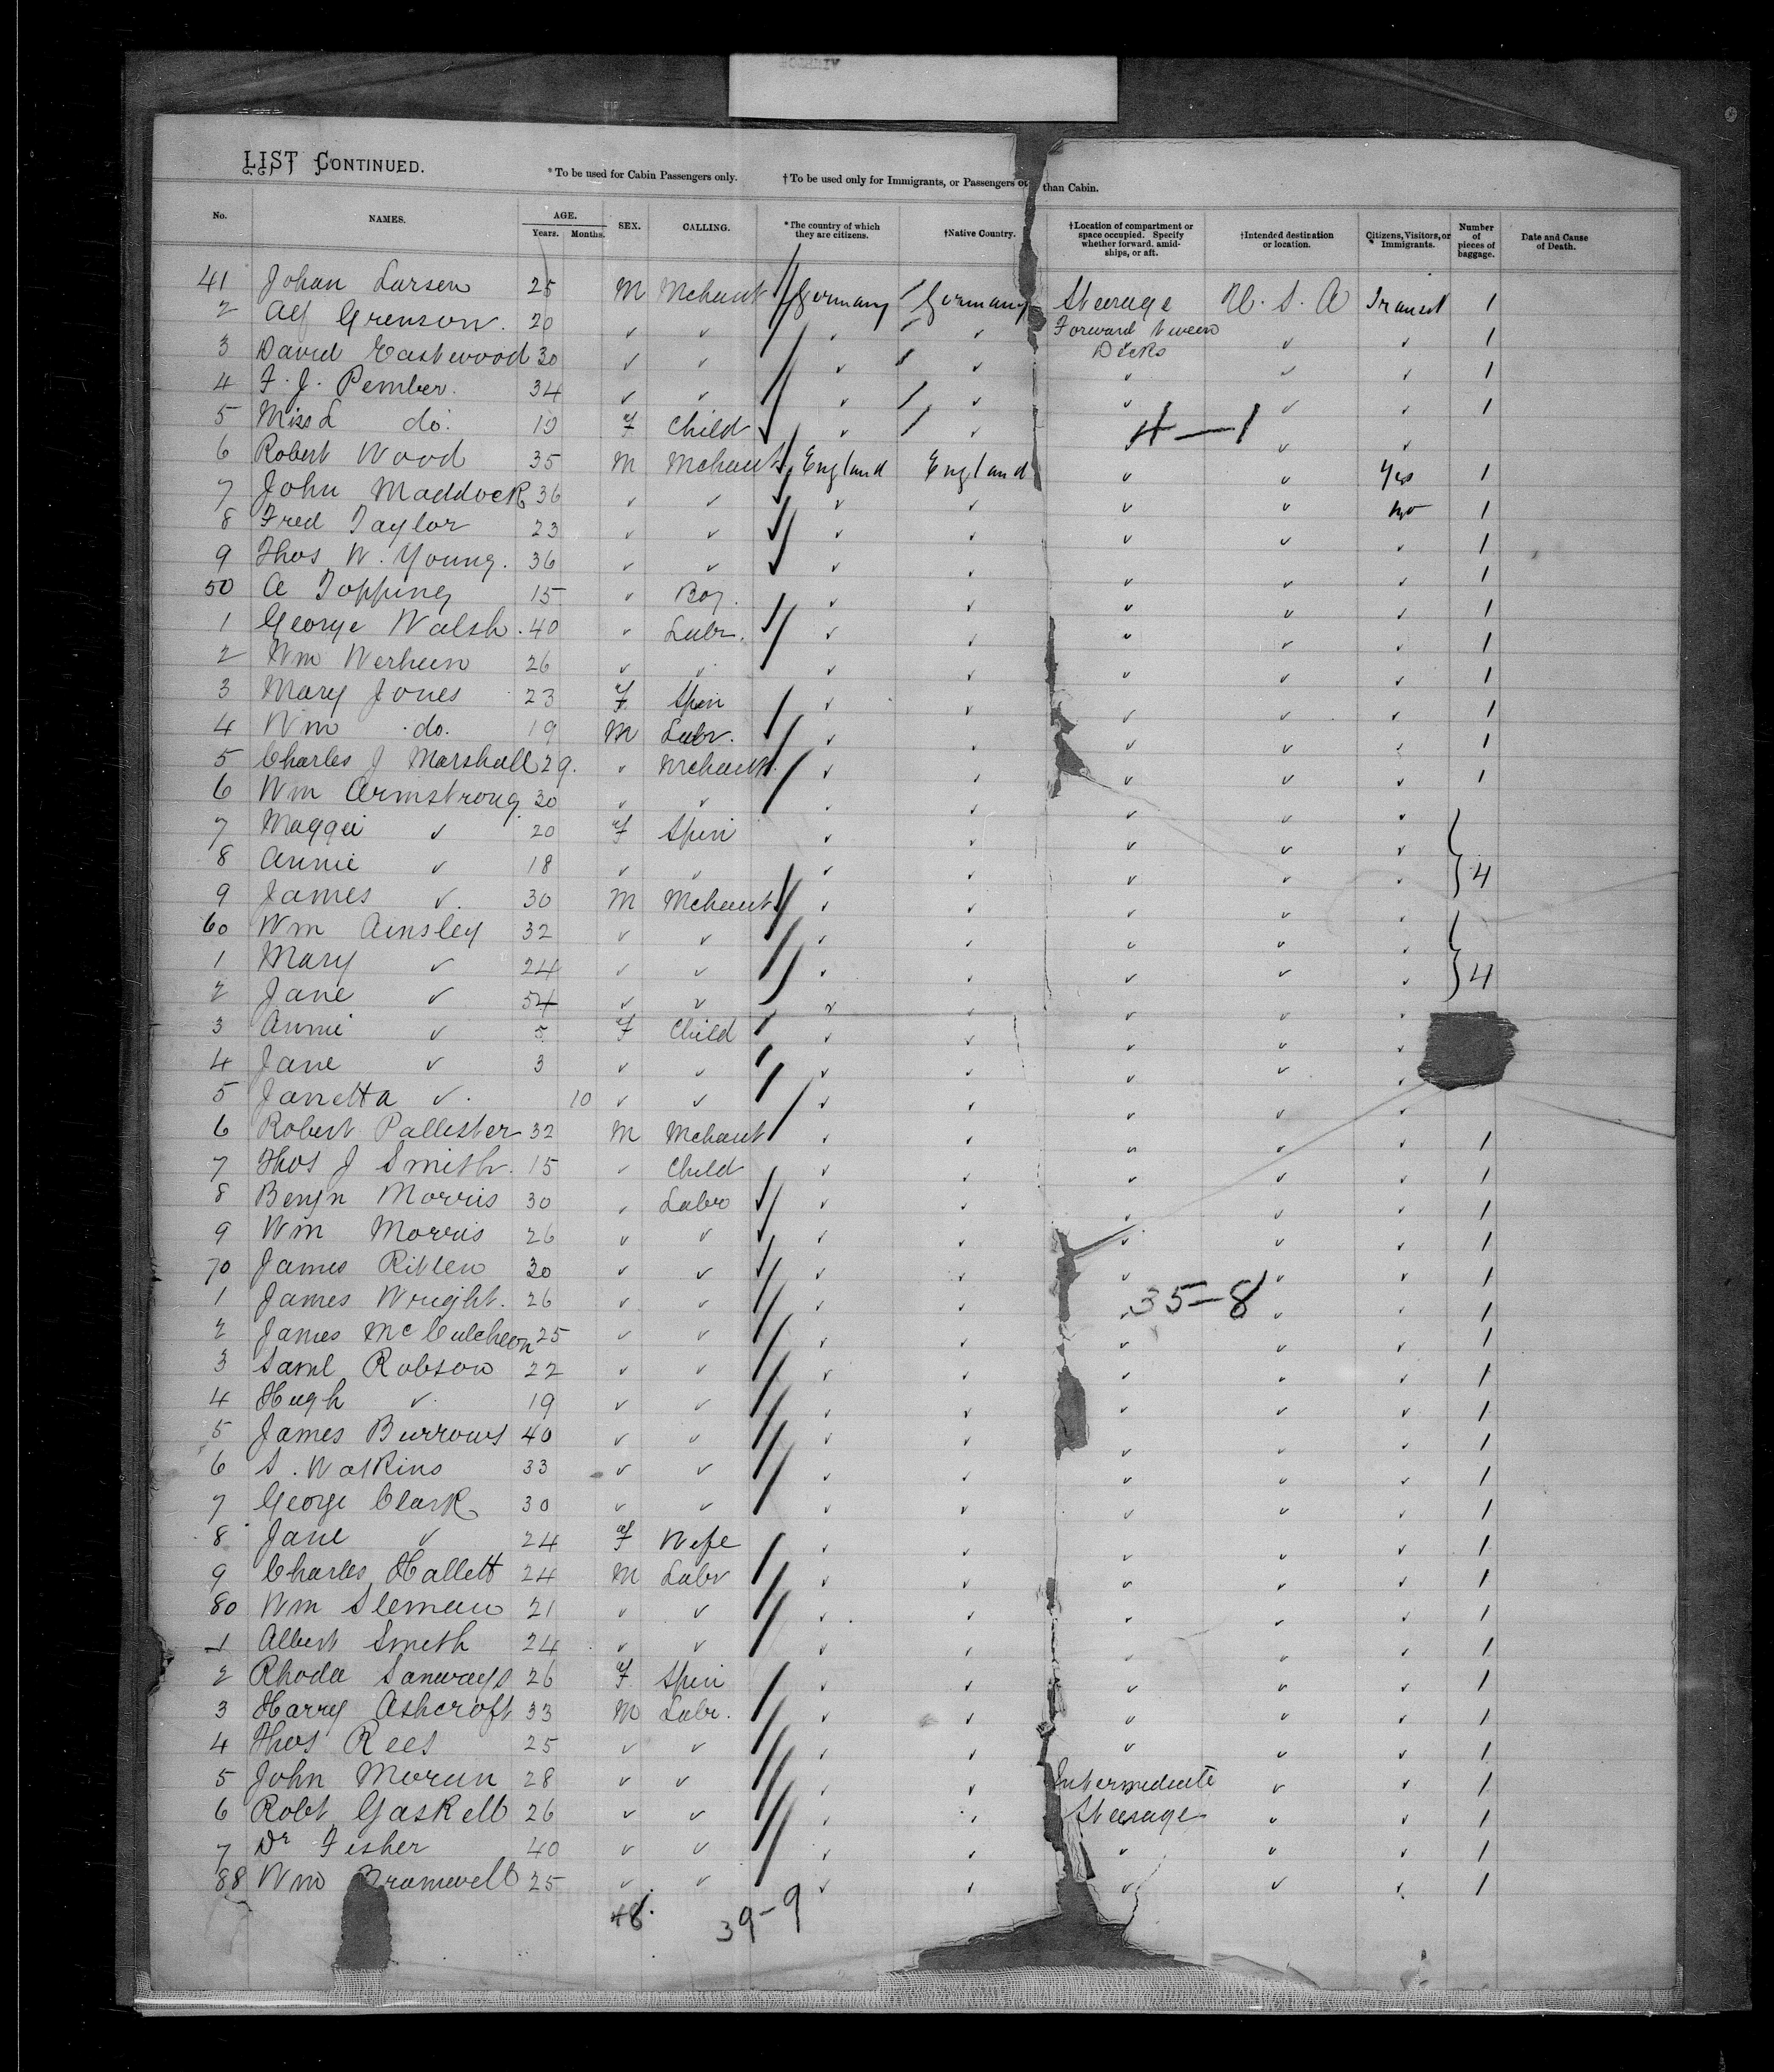 LIST CONTINUED.
*To be used for Cabin Passengers only. †To be used only for Immigrants, or Passengers than Cabin.
No. NAMES. AGE. Years. Months. SEX. CALLING. *The country of which they are citizens. †Native Country. †Location of compartment or space occupied. Specify whether forward, amidships, or aft. †Intended destination or location. Citizens, Visitors, or Immigrants. Number of pieces of baggage. Date and Cause of Death.
41 Johan Larsen 25 M Mchant Germany Germany Steerage U. S. A Transit 1
2 Alf Grenson. 20 ✓ ✓ ✓ ✓ Forward tween Decks ✓ ✓ 1
3 David Eastwood 30 ✓ ✓ ✓ ✓ ✓ ✓ ✓ 1
4 F. J. Pember. 34 ✓ ✓ ✓ ✓ ✓ ✓ ✓ 1
5 Miss L do. 10 F Child ✓ ✓ 4—1 ✓ ✓
6 Robert Wood 35 M Mchant England England ✓ ✓ Yes 1
7 John Maddock 36 ✓ ✓ ✓ ✓ ✓ ✓ no 1
8 Fred Taylor 23 ✓ ✓ ✓ ✓ ✓ ✓ ✓ 1
9 Thos W. Young. 36 ✓ ✓ ✓ ✓ ✓ ✓ ✓ 1
50 A Topping 15 ✓ Boy. ✓ ✓ ✓ ✓ ✓ 1
1 George Walsh. 40 ✓ Labr. ✓ ✓ ✓ ✓ ✓ 1
2 Wm 26 ✓ ✓ ✓ ✓ ✓ ✓ ✓ 1
3 Mary Jones 23 F Spin ✓ ✓ ✓ ✓ ✓ 1
4 Wm do. 19 M Labr. ✓ ✓ ✓ ✓ ✓ 1
5 Charles J Marshall 29. ✓ Mchant. ✓ ✓ ✓ ✓ ✓ 1
6 Wm Armstrong 30 ✓ ✓ ✓ ✓ ✓ ✓ ✓
7 Maggie ✓ 20 F Spin ✓ ✓ ✓ ✓ ✓
8 Annie ✓ 18 ✓ ✓ ✓ ✓ ✓ ✓ ✓ } 4
9 James ✓. 30 M Mchant ✓ ✓ ✓ ✓ ✓
60 Wm Ainsley 32 ✓ ✓ ✓ ✓ ✓ ✓ ✓
1 Mary ✓ 24 ✓ ✓ ✓ ✓ ✓ ✓ ✓ } 4
2 Jane ✓ 54 ✓ ✓ ✓ ✓ ✓ ✓ ✓
3 Annie ✓ 5 F Child ✓ ✓ ✓ ✓ ✓
4 Jane ✓ 3 ✓ ✓ ✓ ✓ ✓ ✓ ✓
5 Janetta ✓. 10 ✓ ✓ ✓ ✓ ✓ ✓ ✓
6 Robert Pallister 32 M Mchant ✓ ✓ ✓ ✓ ✓ 1
7 Thos J Smith. 15 ✓ Child ✓ ✓ ✓ ✓ ✓ 1
8 Benjn Morris 30 ✓ Labr ✓ ✓ ✓ ✓ ✓ 1
9 Wm Morris 26 ✓ ✓ ✓ ✓ ✓ ✓ ✓ 1
70 James 30 ✓ ✓ ✓ ✓ ✓ ✓ ✓ 1
1 James Wright. 26 ✓ ✓ ✓ ✓ 35—8 ✓ ✓ 1
2 James McCutcheon 25 ✓ ✓ ✓ ✓ ✓ ✓ ✓ 1
3 Saml Robson 22 ✓ ✓ ✓ ✓ ✓ ✓ ✓ 1
4 Hugh ✓. 19 ✓ ✓ ✓ ✓ ✓ ✓ ✓ 1
5 James Burrows 40 ✓ ✓ ✓ ✓ ✓ ✓ ✓ 1
6 S. Watkins 33 ✓ ✓ ✓ ✓ ✓ ✓ ✓ 1
7 George Clark 30 ✓ ✓ ✓ ✓ ✓ ✓ ✓ 1
8 Jane ✓ 24 F Wife ✓ ✓ ✓ ✓ ✓ 1
9 Charles Hallett 24 M Labr ✓ ✓ ✓ ✓ ✓ 1
80 Wm Sleman 21 ✓ ✓ ✓ ✓ ✓ ✓ ✓ 1
1 Albert Smith 24 ✓ ✓ ✓ ✓ ✓ ✓ ✓ 1
2 Rhoda Sanways 26 F Spin ✓ ✓ ✓ ✓ ✓ 1
3 Harry Ashcroft 33 M Labr. ✓ ✓ ✓ ✓ ✓ 1
4 Thos Rees 25 ✓ ✓ ✓ ✓ ✓ ✓ ✓ 1
5 John Moran 28 ✓ ✓ ✓ ✓ Intermediate ✓ ✓ 1
6 Robt Gaskell 26 ✓ ✓ ✓ ✓ Steerage ✓ ✓ 1
7 Dr Fisher 40 ✓ ✓ ✓ ✓ ✓ ✓ ✓ 1
88 Wm Bramwell 25 ✓ ✓ ✓ ✓ ✓ ✓ ✓ 1
48. 39—9